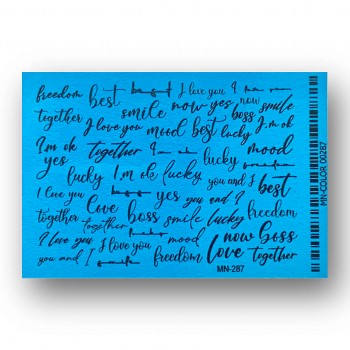 freedom best I love you
together smile now yes now smile
I love you mood best boss lucky I,m ok
I,m ok together I lucky mood
yes
lucky I,m ok lucky you and I best
I love you yes you and I
together Love boss smile lucky freedom
together
I love you I love you mood now boss
you and I freedom love together
MN-287
MN-COLOR 00287